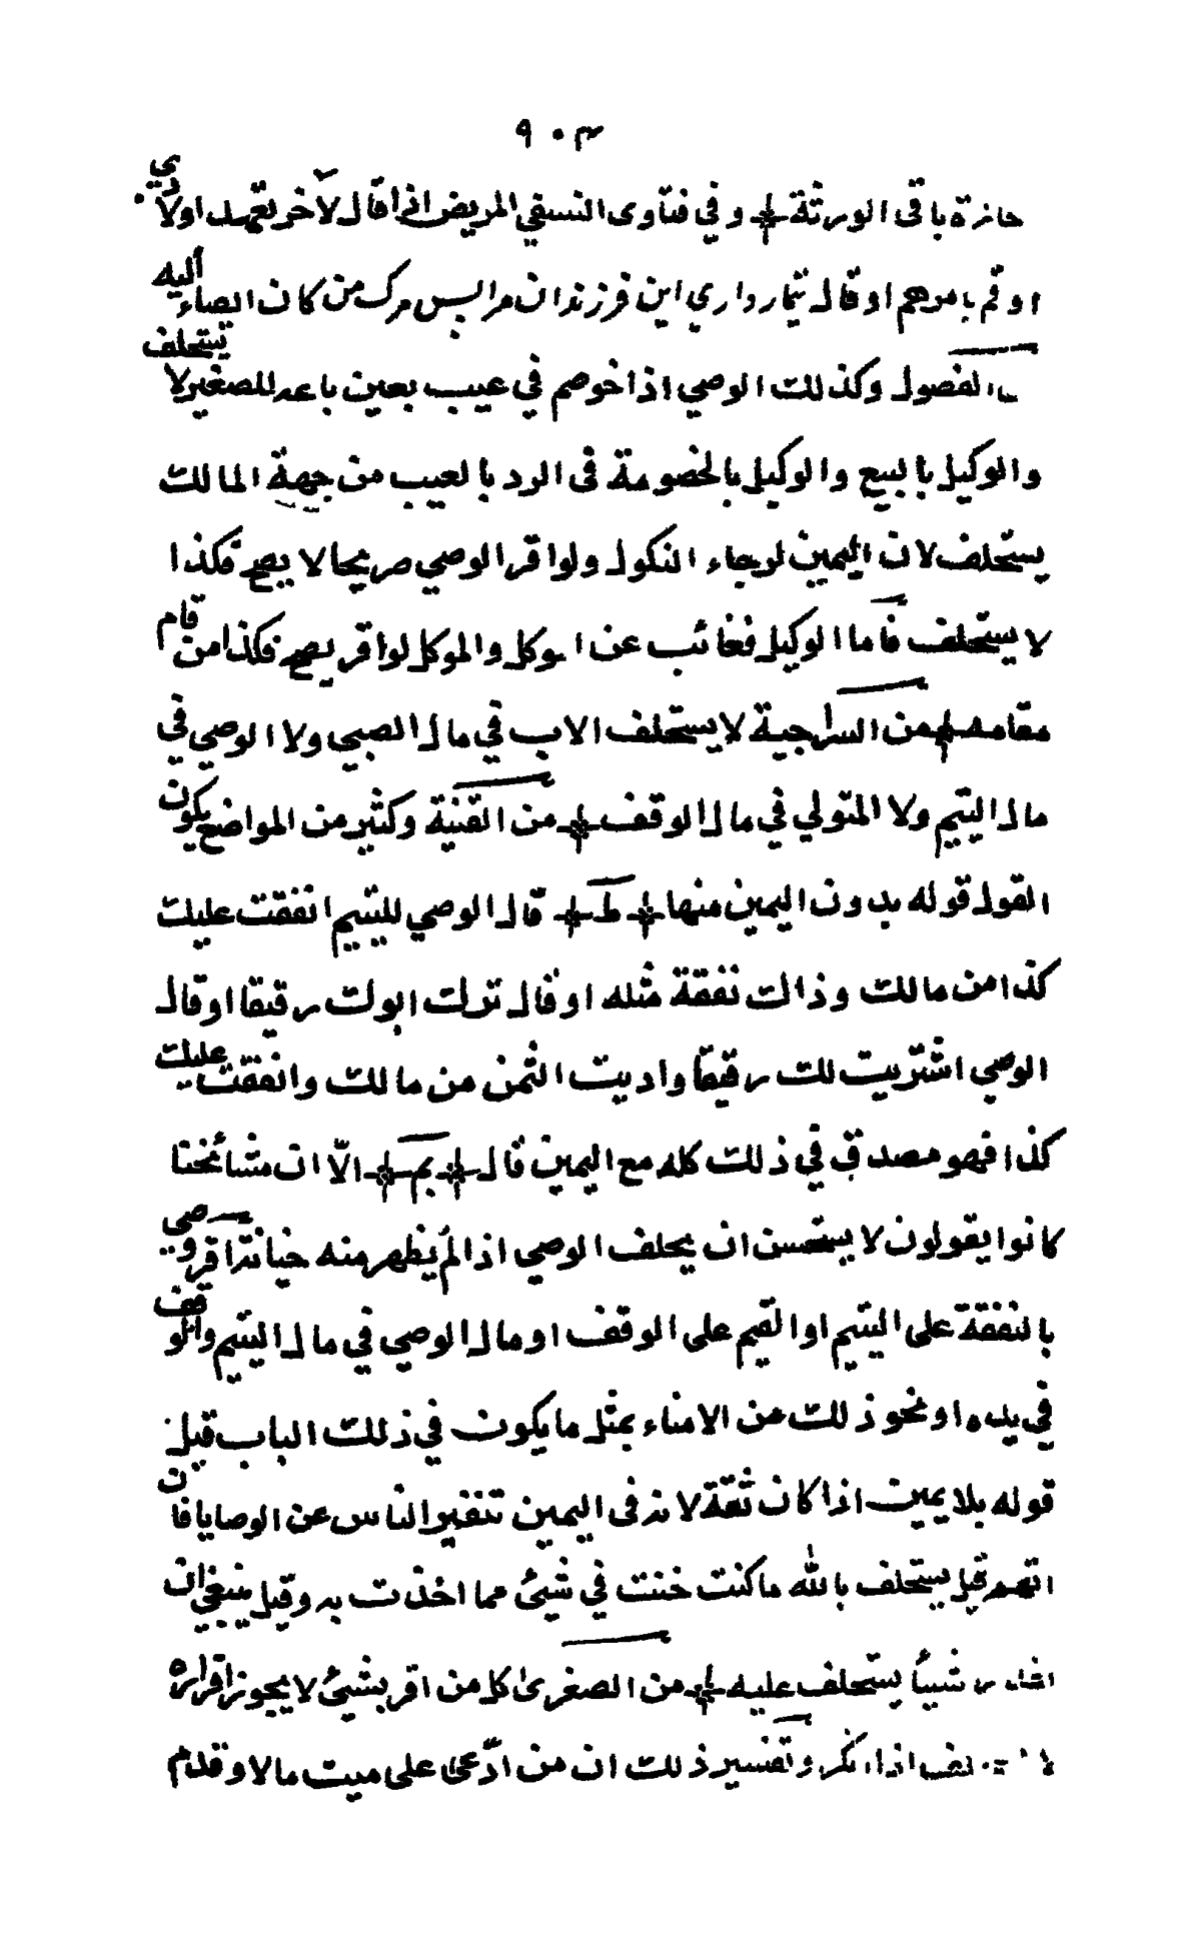 ٩٠٣
باقى الورثة وفي فتاوى النسفي المريض اذا قال لآخر تعهد اولادي
او قم بامرهم او قال تيمار داري اين فرزندان مرا پس مرك من كان ايصاء اليه
الفصول وكذلك الوصي اذا خوصم في عيب بعين باعه للصغير لا يستحلف
والوكيل بالبيع والوكيل بالخصومة فى الرد بالعيب من جهة المالك
يستحلف لان اليمين لرجاء النكول ولو اقر الوصي صريحا لا يصح فكذا
لا يستحلف فاما الوكيل فغائب عن الموكل والموكل لو اقر يصح فكذا من قام
مقامه من السراجية لا يستحلف الاب في مال الصبي ولا الوصي في
مال اليتيم ولا المتولي في مال الوقف من القنية وكثير من المواضع يكون
القول قوله بدون اليمين منها ط قال الوصي لليتيم انفقت عليك
كذا من مالك وذالك نفقة مثله او قال ترك ابوك رقيقا او قال
الوصي اشتريت لك رقيقا واديت الثمن من مالك وانفقت عليك
كذا فهو مصدق في ذلك كله مع اليمين قال بم الّا ان مشائخنا
كانوا يقولون لا يستحسن ان يحلف الوصي اذا لم يظهر منه خيانة اقر وصي
بالنفقة على اليتيم او القيم على الوقف او مال الوصي في مال اليتيم والوقف
في يده او نحو ذلك من الامناء بمثل ما يكون في ذلك الباب قبل
قوله بلا يمين اذا كان ثقة لانه فى اليمين تنفير الناس عن الوصايا فان
اتهم قيل يستحلف بالله ما كنت خنت في شيئ مما اخذت به وقيل ينبغي ان
شيئا يستحلف عليه من الصغرى كل من اقر بشيئ لا يجوز اقراره
لا اذا انكر وتفسير ذلك ان من ادّعى على ميت مالا وقدم